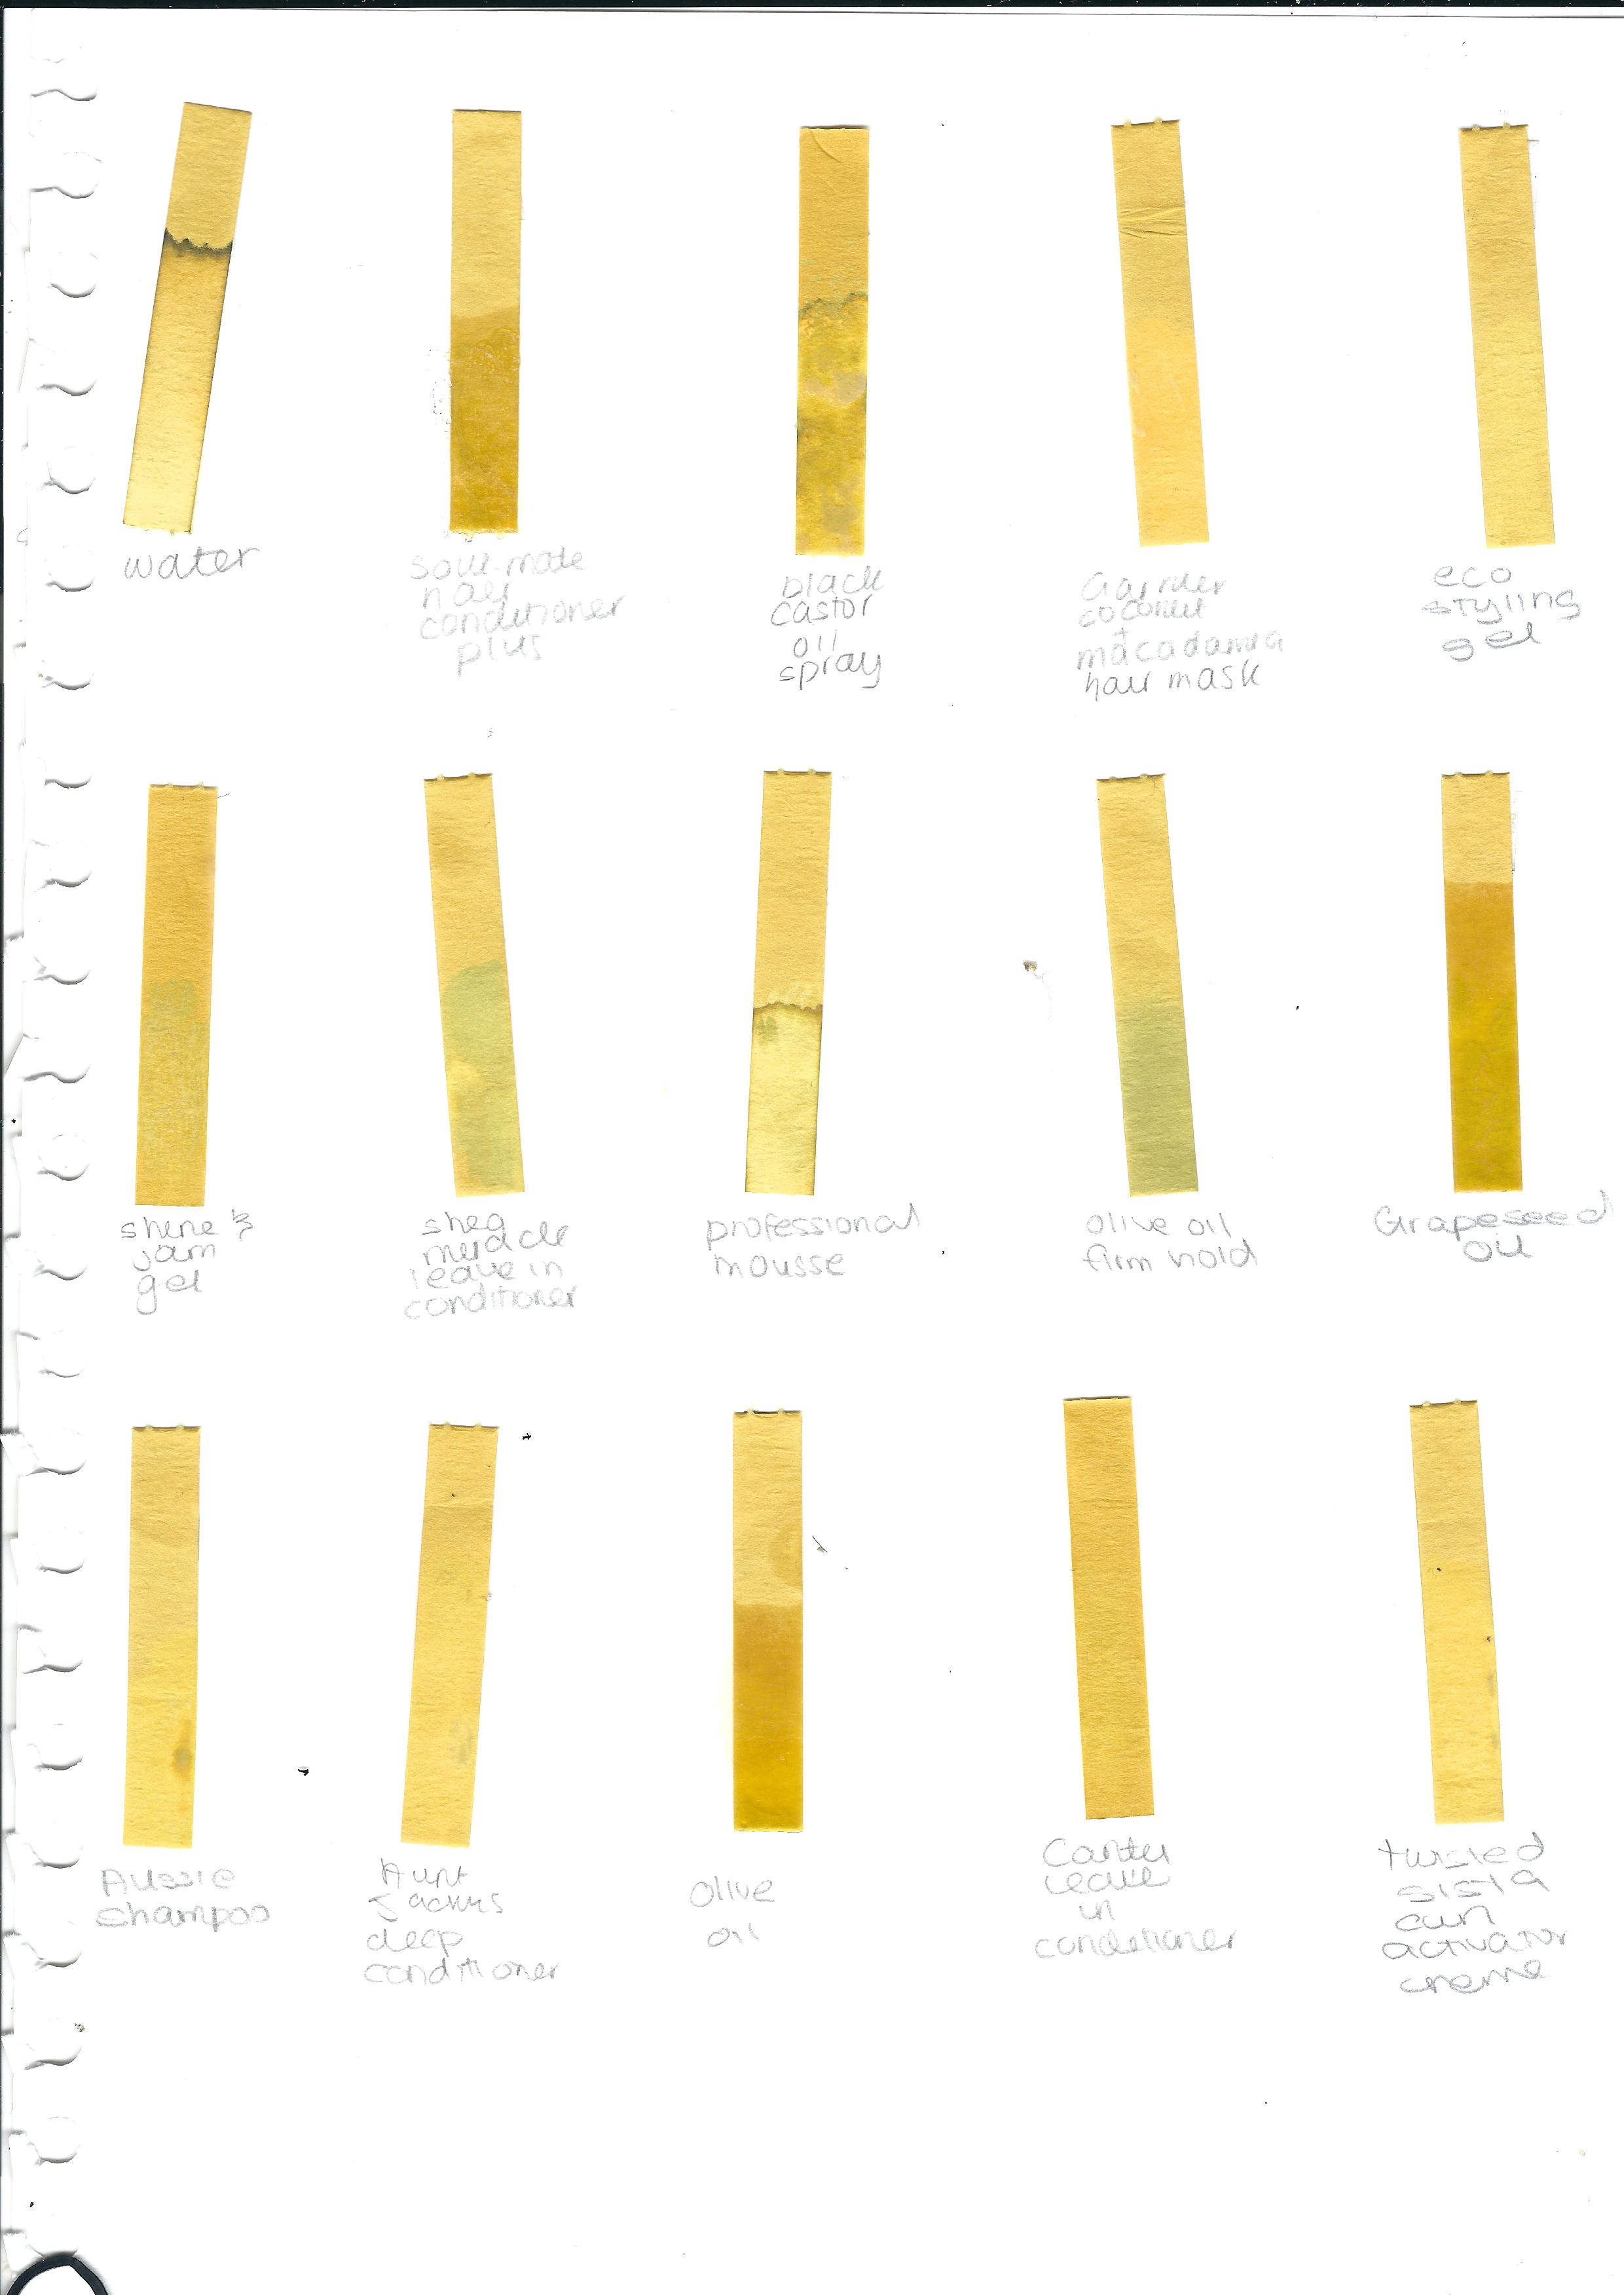 water
Soul-mate
hair
conditioner
plus
black
castor
oil
spray
Garnier
coconut
+
macadamia
hair mask
eco
styling
gel
shine &
jam
gel
shea
miracle
leave in
conditioner
professional
mousse
olive oil
firm hold
Grapeseed
oil
Aussie
shampoo
Aunt
Jackies
deep
conditioner
olive
oil
Cantu
leave
in
conditioner
twisted
sista
curl
activator
creme